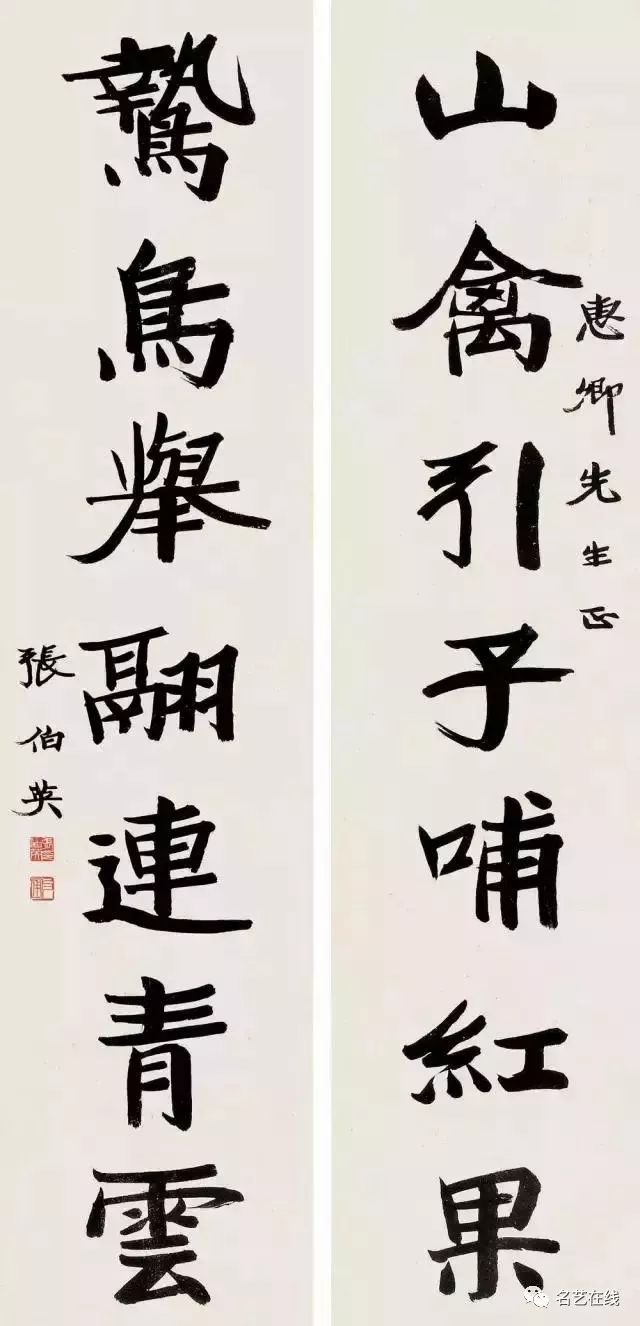 惠卿先生正
山禽引子哺紅果
鷙鳥舉翮連青雲
張伯英
名艺在线